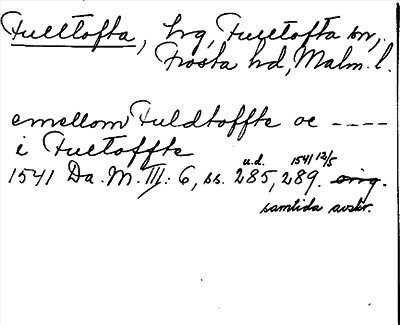 Fulltofta, hg, Fulltofta sn,
Frosta hd, Malm. l.
emellom Fuldtoffte oc ----
i Fultoffte
u.d. 1541 12/5
1541 Da. M. III: 6, ss. 285, 289. orig.
samtida avskr.